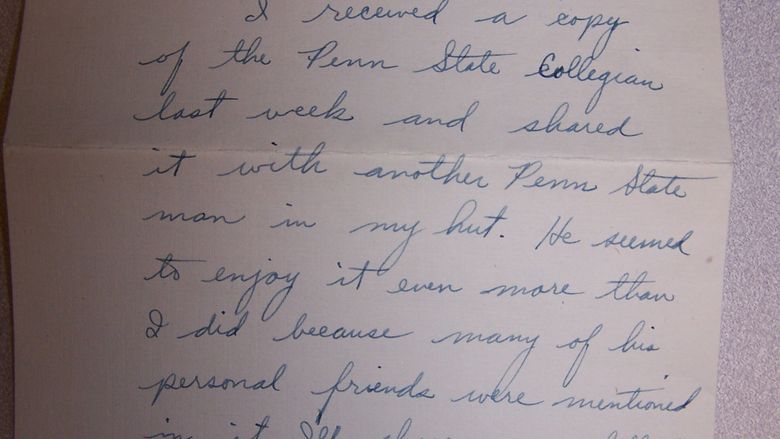 I received a copy
of the Penn State Collegian
last week and shared
it with another Penn State
man in my hut. He seemed
to enjoy it even more than
I did because many of his
personal friends were mentioned
in it I'll